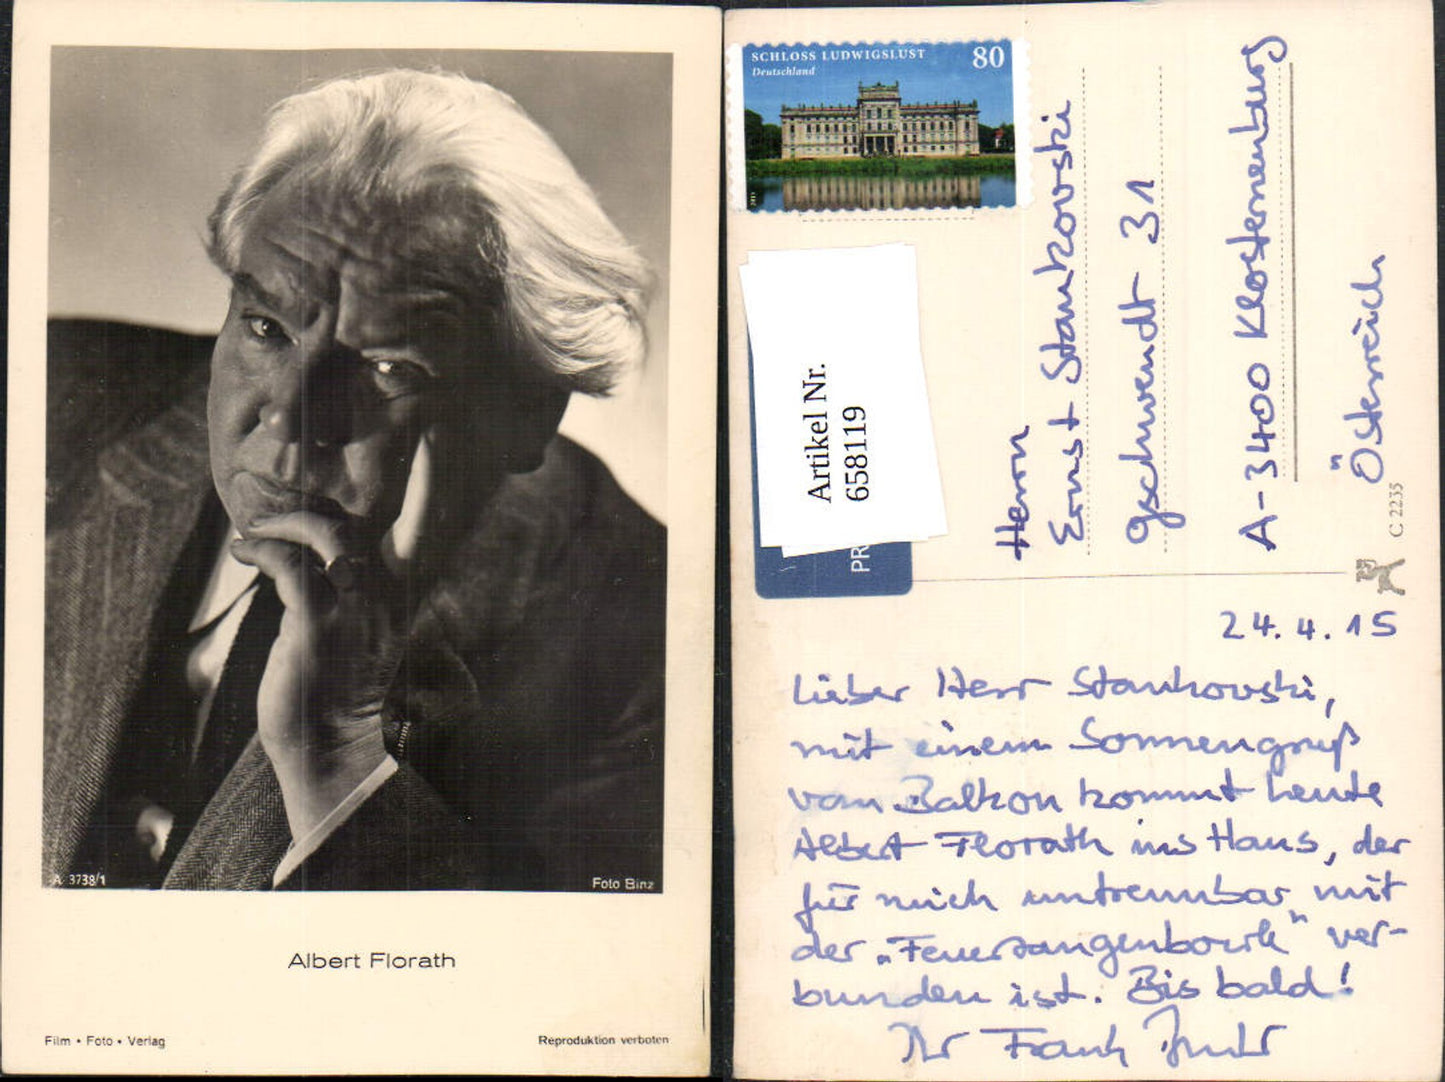 A 3738/1
Foto Binz
Albert Florath
Film • Foto • Verlag
Reproduktion verboten
SCHLOSS LUDWIGSLUST
Deutschland
80
Artikel Nr.
6581119
PR
Herrn
Ernst Stankovski
Gschwendt 31
A-3400 Klosterneuburg
Österreich
C 2235
24.4.15
Lieber Herr Stankovski,
mit einem Sonnengruß
vom Balkon kommt heute
Albert Florath ins Haus, der
für mich untrennbar mit
der „Feuerzangenbowle" ver-
bunden ist. Bis bald!
Ihr Frank